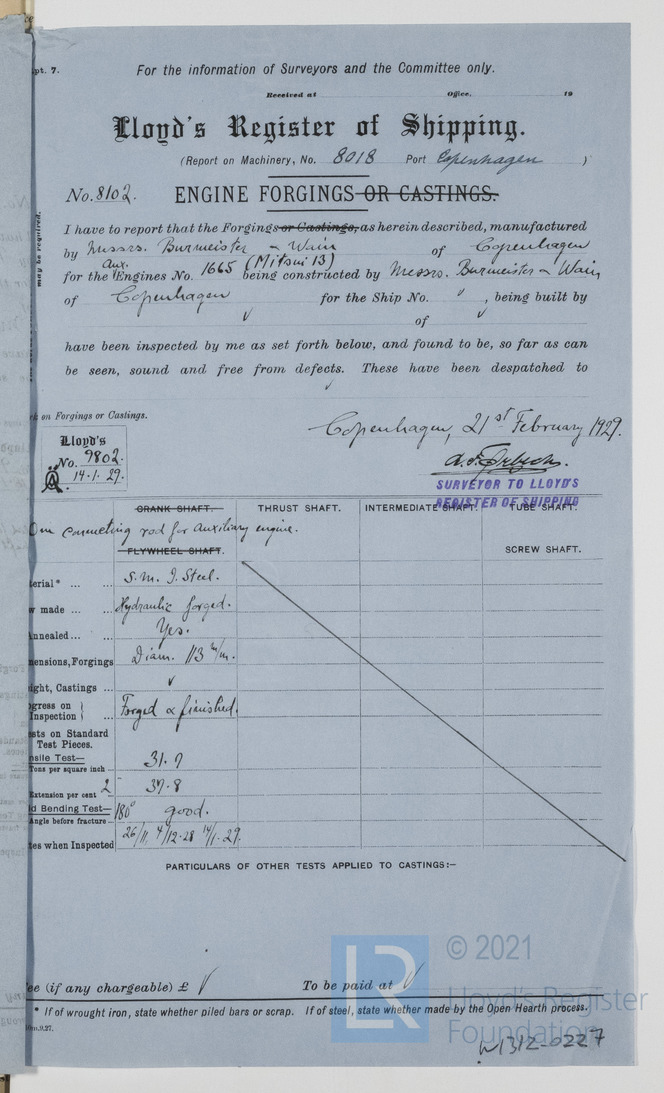 pt. 7.
For the information of Surveyors and the Committee only.
Received at Office, 19
Lloyd's Register of Shipping.
(Report on Machinery, No. 8018 Port Copenhagen )
No. 8102. ENGINE FORGINGS OR CASTINGS.
I have to report that the Forgings or Castings, as herein described, manufactured
by Messrs. Burmeister & Wain of Copenhagen
for the Aux. Engines No. 1665 (Mitsui 13) being constructed by Messrs. Burmeister & Wain,
of Copenhagen for the Ship No. , being built by
of
have been inspected by me as set forth below, and found to be, so far as can
be seen, sound and free from defects. These have been despatched to
may be required.
on Forgings or Castings.
Copenhagen, 21st February 1929.
Lloyd's
No. 9802.
14.1.29.
SURVEYOR TO LLOYD'S
REGISTER OF SHIPPING
CRANK SHAFT. THRUST SHAFT. INTERMEDIATE SHAFT. TUBE SHAFT.
One connecting rod for auxiliary engine.
FLYWHEEL SHAFT. SCREW SHAFT.
erial* ... ... S. M. I. Steel.
w made ... ... Hydraulic forged.
Annealed ... ... Yes.
ensions, Forgings Diam. 113 m/m.
ight, Castings ... √
gress on Inspection ... Forged & finished.
sts on Standard
Test Pieces.
nsile Test—
Tons per square inch ... 31.7
Extension per cent 2" 37.8
d Bending Test—
Angle before fracture ... 180° good.
tes when Inspected 26/11, 4/12-28 14/1-29.
PARTICULARS OF OTHER TESTS APPLIED TO CASTINGS:—
ee (if any chargeable) £ √ To be paid at √
* If of wrought iron, state whether piled bars or scrap. If of steel, state whether made by the Open Hearth process.
LR
© 2021
Lloyd's Register
Foundation
W1312-0227